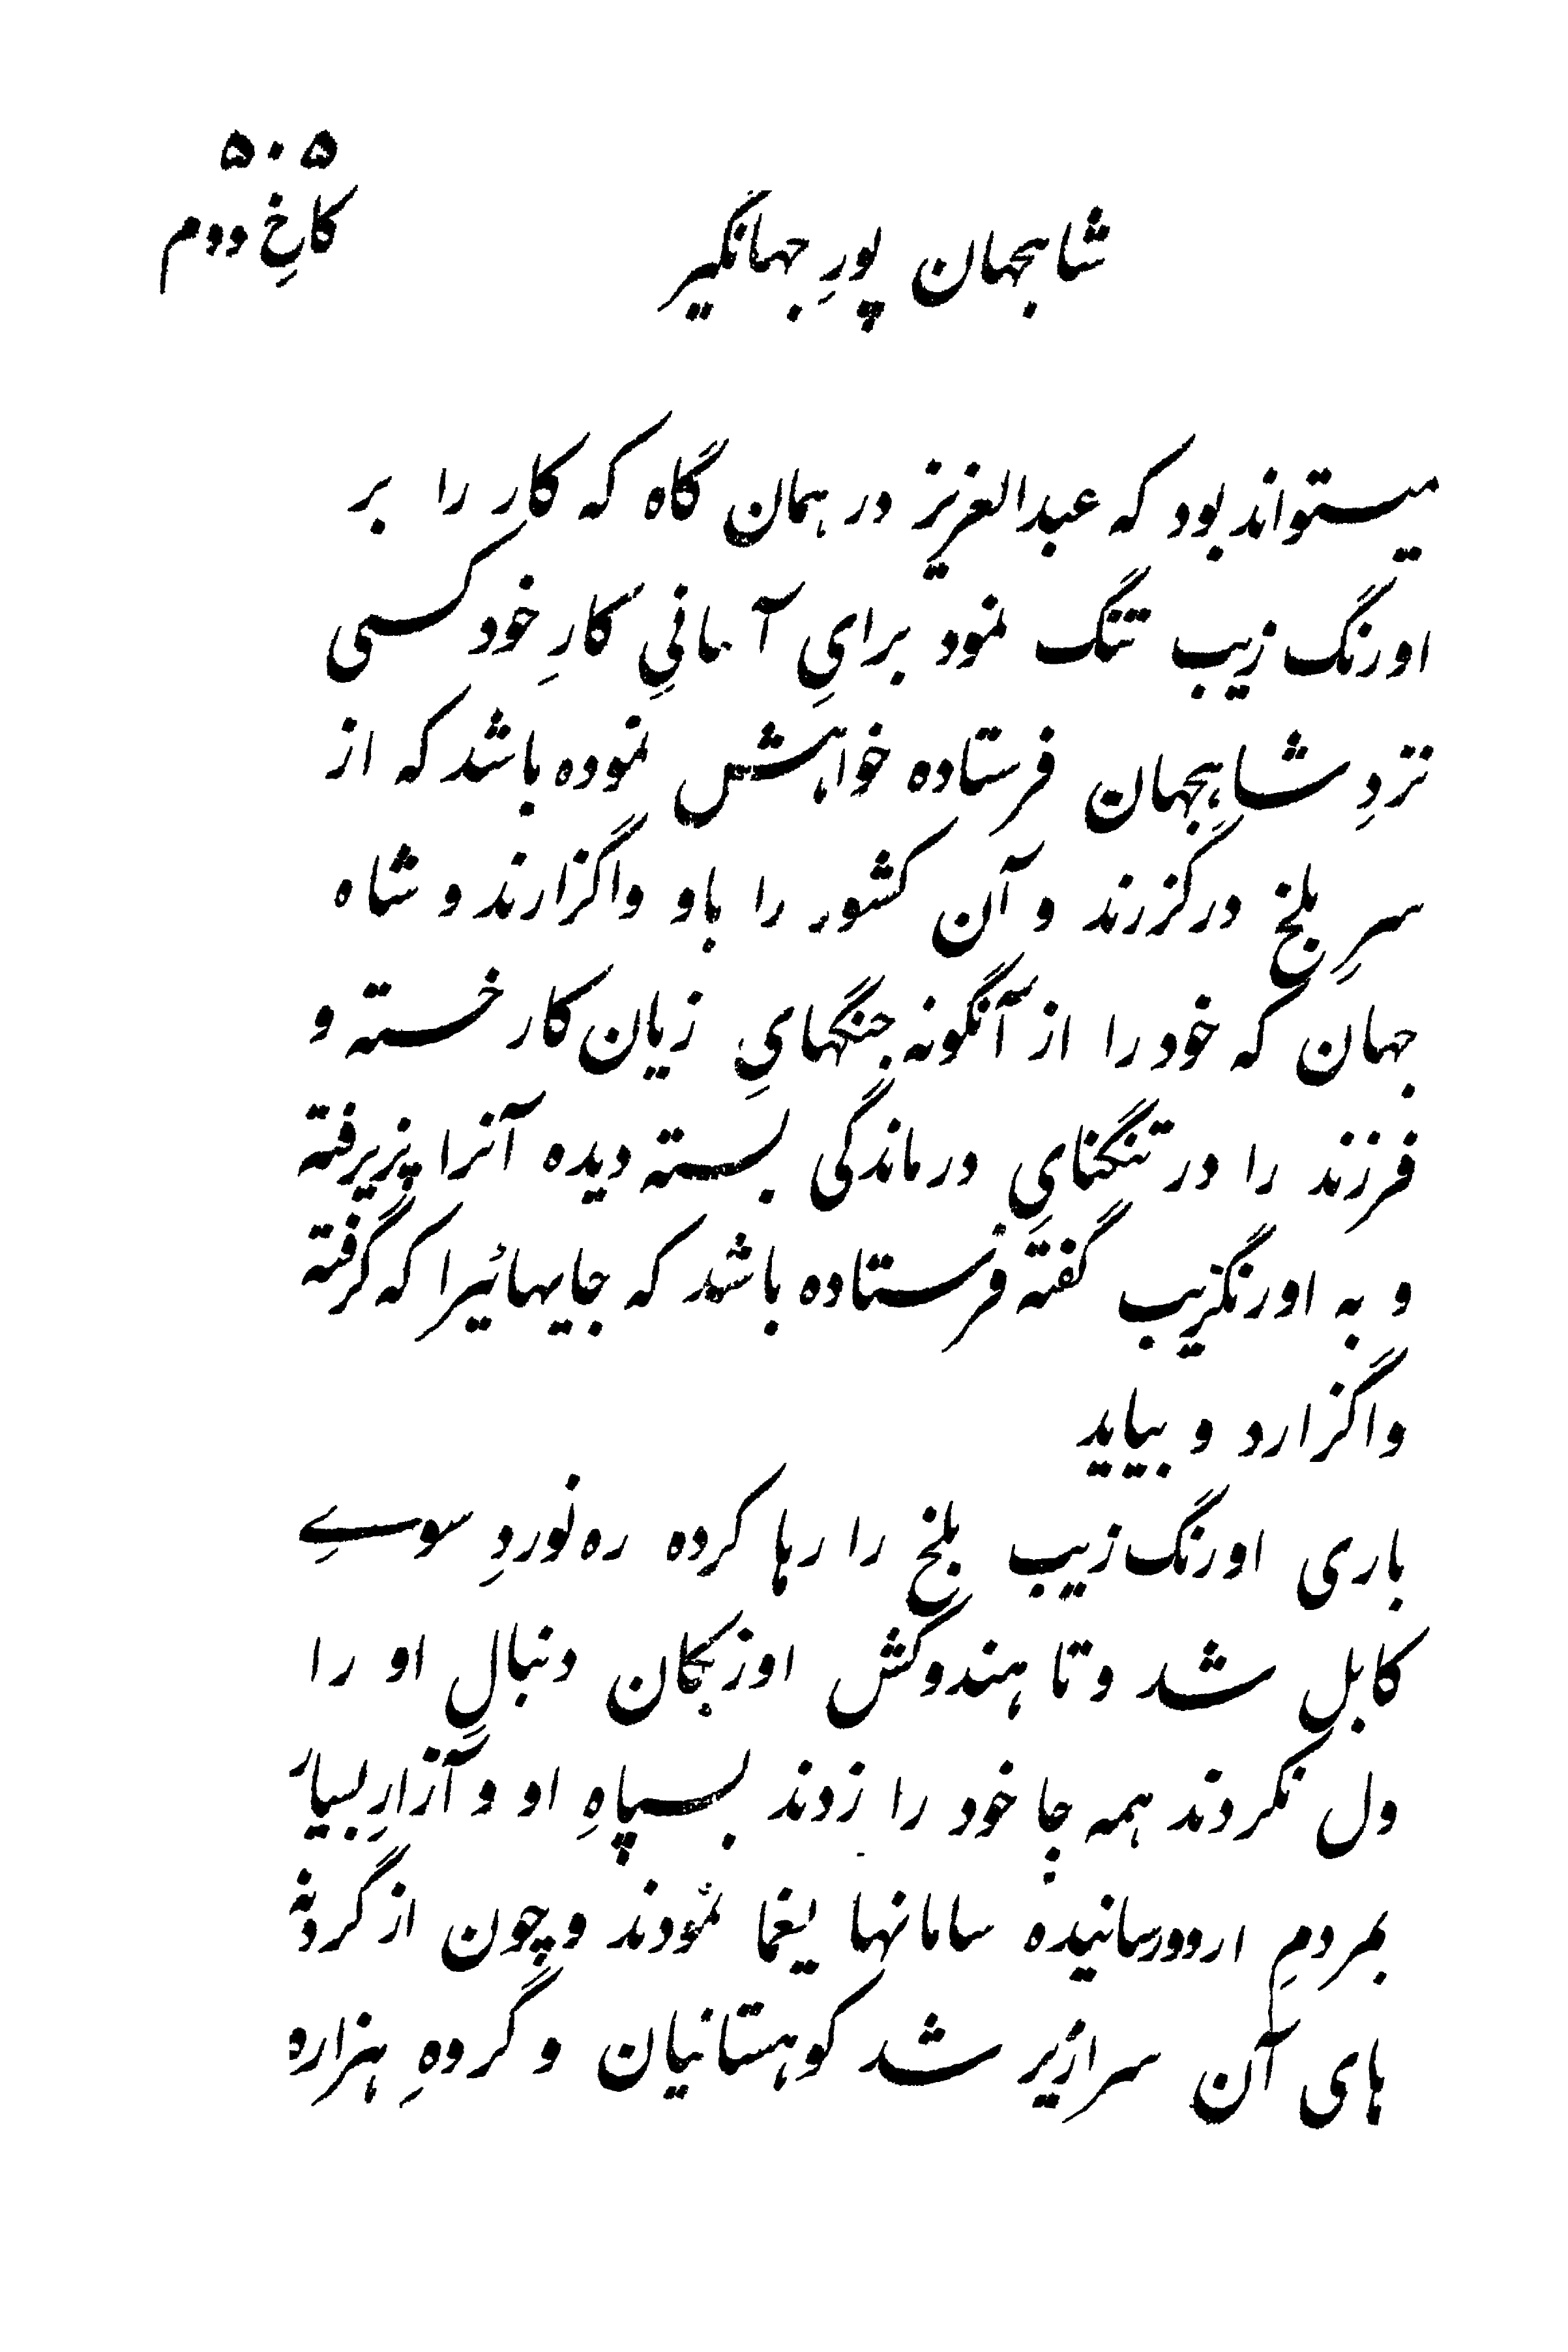 ۵۰۵
کاخِ دوم
شاهجهان پورِ جهانگیر
میستواند بود که عبدالعزیز در همان گاه که کار را بر
اورنگ زیب تنگ نمود برایِ آمانیِ کارِ خود کسی
نزدِ شاهجهان فرستاده خواهش نموده باشد که از
سرِ بلخ درگزرند و آن کشور را باو واگزارند و شاه
جهان که خود را از آنگونه جنگهایِ زیان کار خسته و
فرزند را در تنگنایِ درماندگی بسته دیده آنرا پزیرفته
و به اورنگزیب گفته فرستاده باشد که جایهائیرا که گرفته
واگزارد و بیاید
باری اورنگ زیب بلخ را رها کرده ره نوردِ سوےِ
کابل شد و تا هندوکش اوزبکان دنبالِ او را
ول نکردند همه جا خود را زدند بسپاهِ او و آزارِ بسیار
بمردمِ اردو رسانیده سامانها یغما نمودند و چون از گردنه
های آن سرازیر شد کوهستانیان و گروهِ هزاره